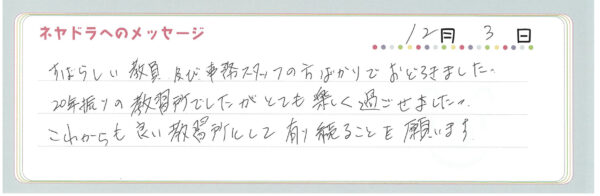 ネヤドラへのメッセージ 12月 3日
すばらしい教員及び事務スタッフの方ばかりでおどろきました。
20年振りの教習所でしたがとても楽しく過ごせました。
これからも良い教習所として有り続ることを願います